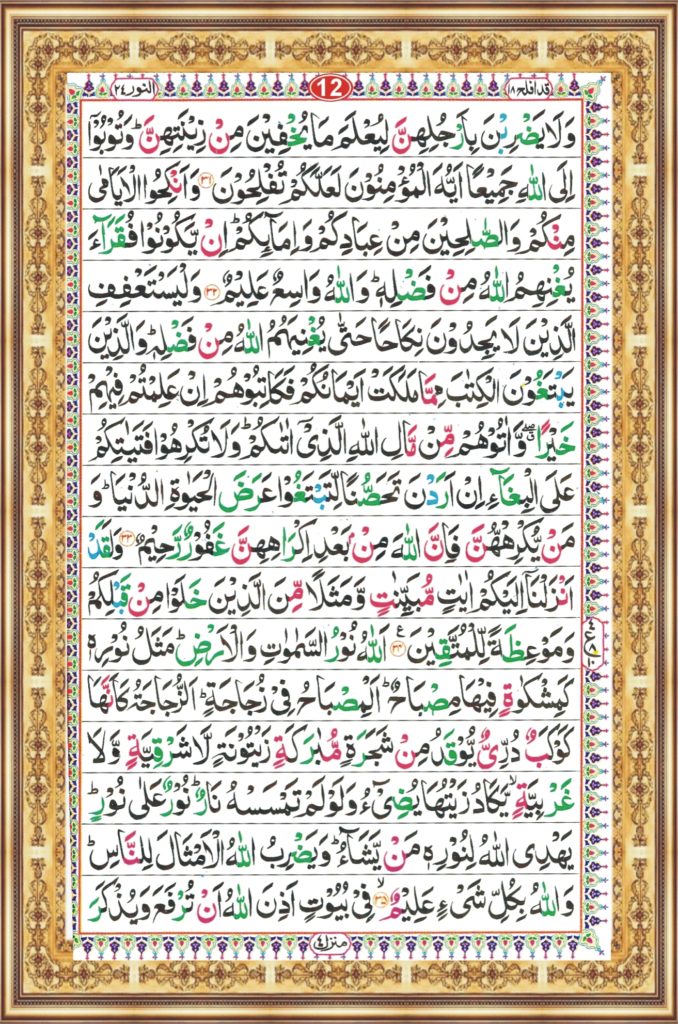 قد افلح ١٨ 12 النور ٢٤
وَلَا يَضْرِبْنَ بِاَرْجُلِهِنَّ لِيُعْلَمَ مَا يُخْفِيْنَ مِنْ زِيْنَتِهِنَّ ؕ وَتُوْبُوْۤا
اِلَى اللّٰهِ جَمِيْعًا اَيُّهَ الْمُؤْمِنُوْنَ لَعَلَّكُمْ تُفْلِحُوْنَ ﴿۳۱﴾ وَاَنْكِحُوا الْاَيَامٰى
مِنْكُمْ وَالصّٰلِحِيْنَ مِنْ عِبَادِكُمْ وَاِمَآئِكُمْ ؕ اِنْ يَّكُوْنُوْا فُقَرَآءَ
يُغْنِهِمُ اللّٰهُ مِنْ فَضْلِهٖ ؕ وَاللّٰهُ وَاسِعٌ عَلِيْمٌ ﴿۳۲﴾ وَلْيَسْتَعْفِفِ
الَّذِيْنَ لَا يَجِدُوْنَ نِكَاحًا حَتّٰى يُغْنِيَهُمُ اللّٰهُ مِنْ فَضْلِهٖ ؕ وَالَّذِيْنَ
يَبْتَغُوْنَ الْكِتٰبَ مِمَّا مَلَكَتْ اَيْمَانُكُمْ فَكَاتِبُوْهُمْ اِنْ عَلِمْتُمْ فِيْهِمْ
خَيْرًا ۖ وَّاٰتُوْهُمْ مِّنْ مَّالِ اللّٰهِ الَّذِيْۤ اٰتٰىكُمْ ؕ وَلَا تُكْرِهُوْا فَتَيٰتِكُمْ
عَلَى الْبِغَآءِ اِنْ اَرَدْنَ تَحَصُّنًا لِّتَبْتَغُوْا عَرَضَ الْحَيٰوةِ الدُّنْيَا ؕ وَ
مَنْ يُّكْرِهْهُّنَّ فَاِنَّ اللّٰهَ مِنْۢ بَعْدِ اِكْرَاهِهِنَّ غَفُوْرٌ رَّحِيْمٌ ﴿۳۳﴾ وَلَقَدْ
اَنْزَلْنَاۤ اِلَيْكُمْ اٰيٰتٍ مُّبَيِّنٰتٍ وَّمَثَلًا مِّنَ الَّذِيْنَ خَلَوْا مِنْ قَبْلِكُمْ
وَمَوْعِظَةً لِّلْمُتَّقِيْنَ ﴿۳۴﴾ اَللّٰهُ نُوْرُ السَّمٰوٰتِ وَالْاَرْضِ ؕ مَثَلُ نُوْرِهٖ
كَمِشْكٰوةٍ فِيْهَا مِصْبَاحٌ ؕ اَلْمِصْبَاحُ فِيْ زُجَاجَةٍ ؕ اَلزُّجَاجَةُ كَاَنَّهَا
كَوْكَبٌ دُرِّيٌّ يُّوْقَدُ مِنْ شَجَرَةٍ مُّبٰرَكَةٍ زَيْتُوْنَةٍ لَّا شَرْقِيَّةٍ وَّلَا
غَرْبِيَّةٍ ۙ يَّكَادُ زَيْتُهَا يُضِيْٓءُ وَلَوْ لَمْ تَمْسَسْهُ نَارٌ ؕ نُوْرٌ عَلٰى نُوْرٍ ؕ
يَهْدِى اللّٰهُ لِنُوْرِهٖ مَنْ يَّشَآءُ ؕ وَيَضْرِبُ اللّٰهُ الْاَمْثَالَ لِلنَّاسِ ؕ
وَاللّٰهُ بِكُلِّ شَيْءٍ عَلِيْمٌ ﴿۳۵﴾ ۙ فِيْ بُيُوْتٍ اَذِنَ اللّٰهُ اَنْ تُرْفَعَ وَيُذْكَرَ
منزل ٤